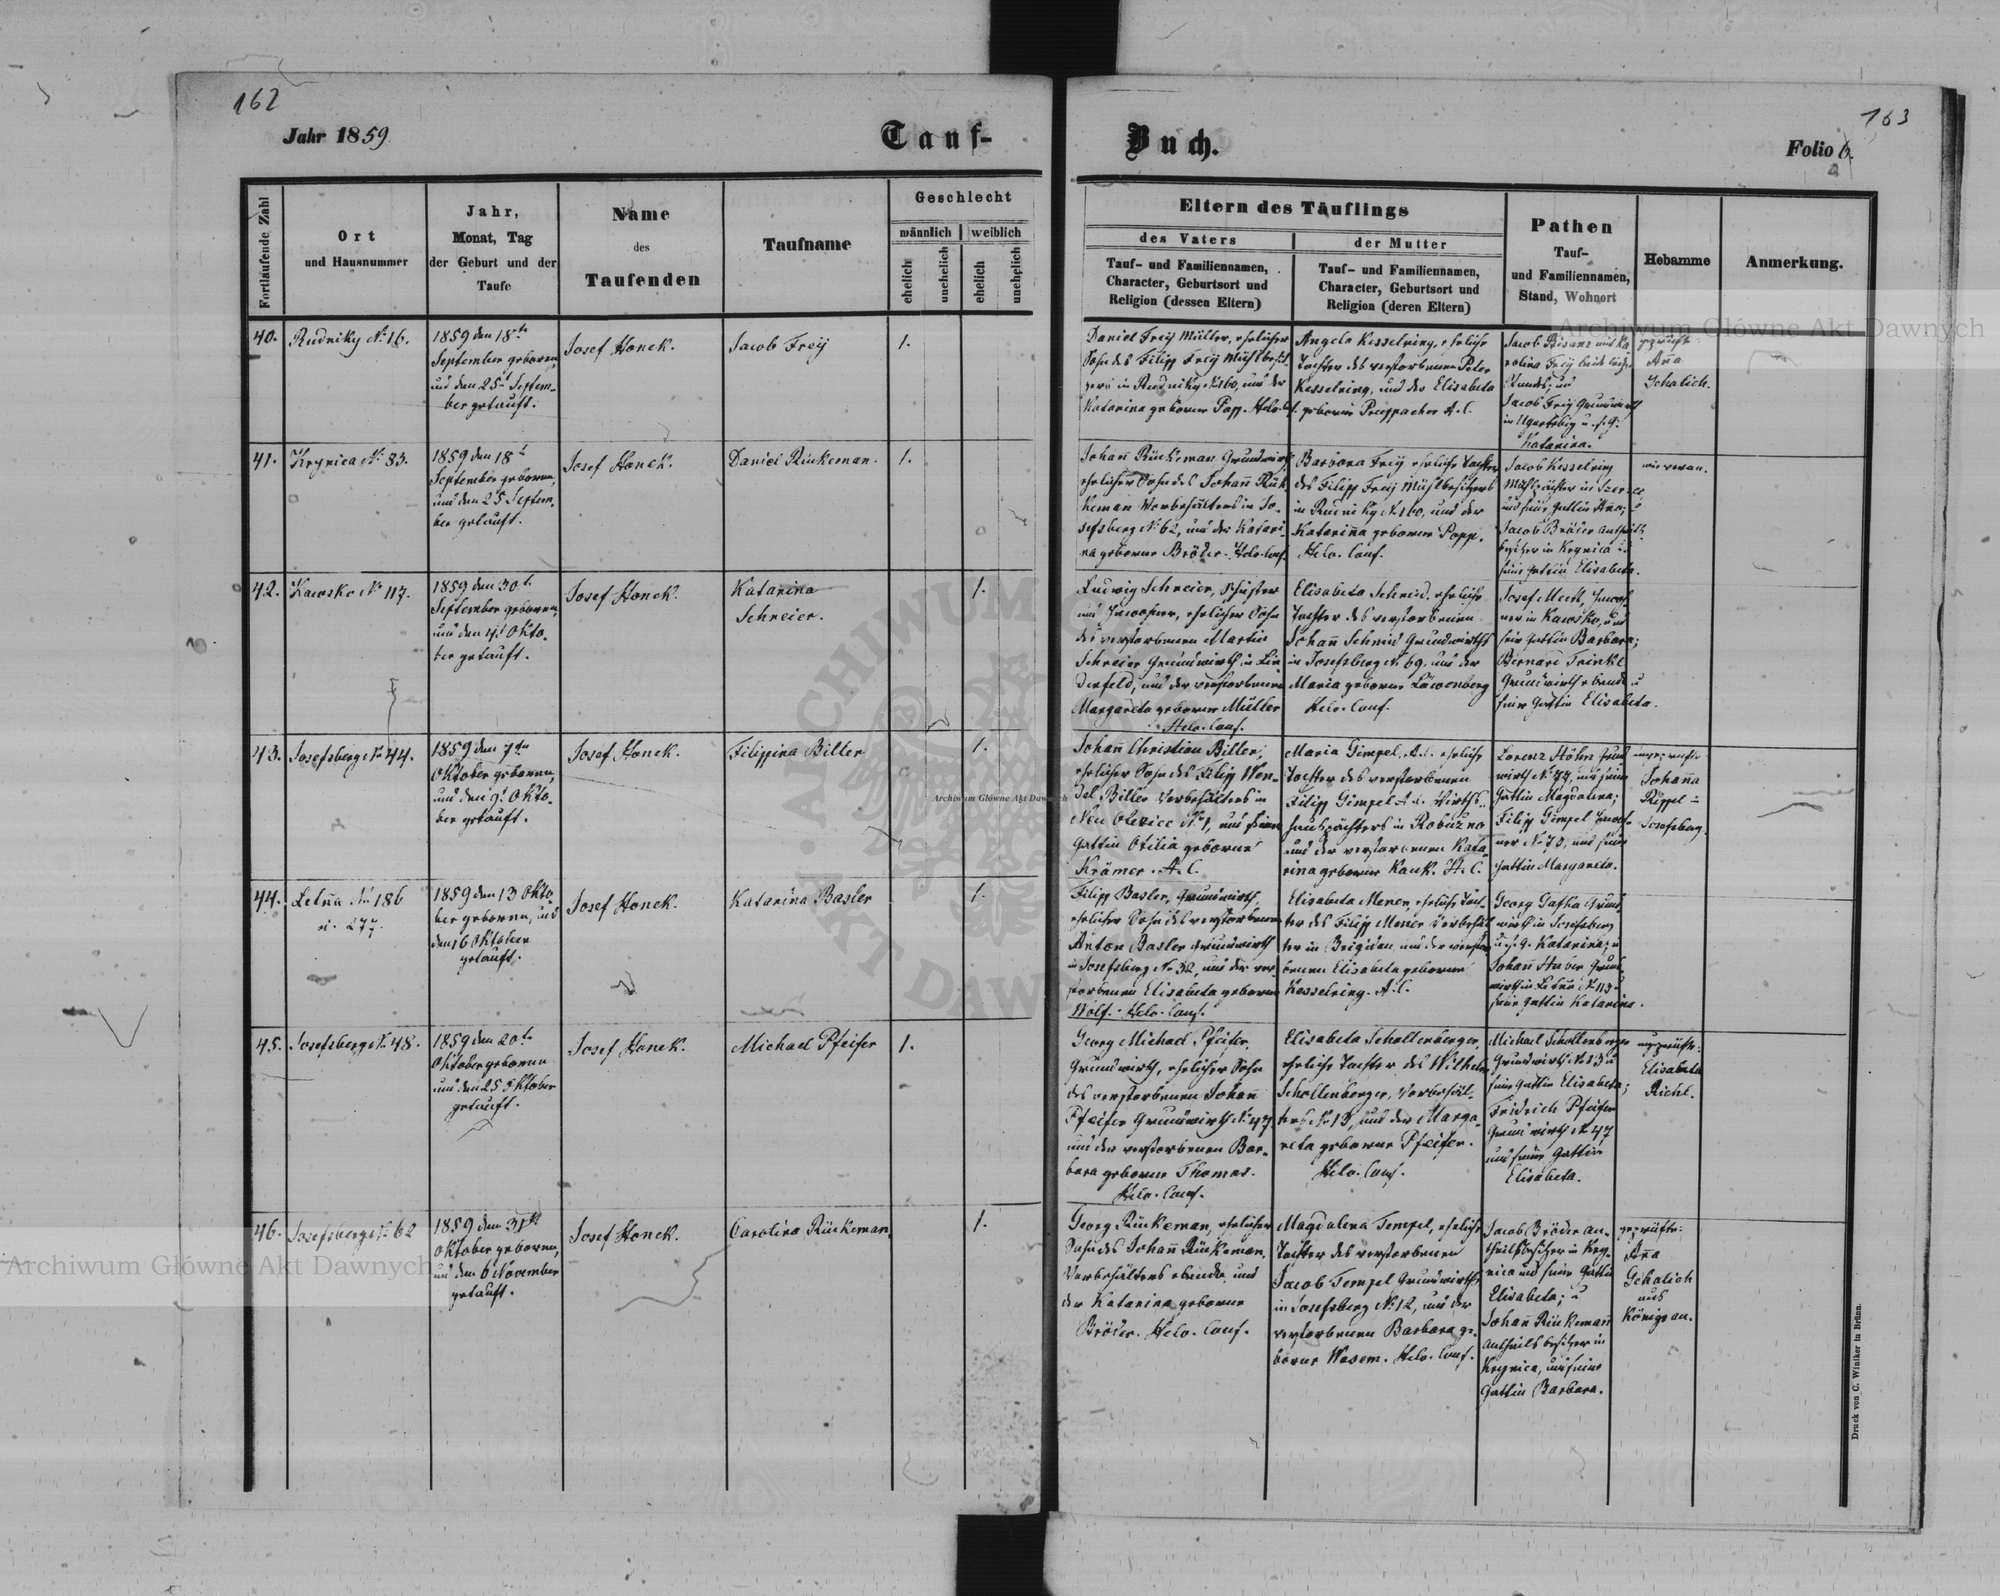 162
Jahr 1859
Tauf-
Buch.
163
Folio 6.
Fortlaufende Zahl
Ort
und Hausnummer
Jahr,
Monat, Tag
der Geburt und der
Taufe
Name
des
Taufenden
Taufname
Geschlecht
männlich
weiblich
ehelich
unehelich
ehelich
unehelich
Eltern des Täuflings
des Vaters
der Mutter
Tauf- und Familiennamen,
Character, Geburtsort und
Religion (dessen Eltern)
Tauf- und Familiennamen,
Character, Geburtsort und
Religion (deren Eltern)
Pathen
Tauf-
und Familiennamen,
Stand, Wohnort
Hebamme
Anmerkung.
40.
Rudniky No 16.
1859 den 18ten
September geboren,
und den 25t Septem-
ber getauft.
Josef Honek.
Jacob Freÿ
1.
Daniel Freÿ Müller, ehelicher
Sohn des Filipp Freÿ Mühlbesit-
zers in Rudniky No 160, und der
Katarina geborne Popp. Helv. C.
Angela Kesselring, eheliche
Tochter des verstorbenen Peter
Kesselring, und der Elisabeta
geborne A. C.
Jacob Bisanz und Ka-
rolina Freÿ beide ledig.
Standes; und
Jacob Freÿ Grundwirth
in Ugartsbeg u. s. G.
Katarina.
geprüft
Aña
Schalich.
41.
Krynica No 33.
1859 den 18t
September geboren,
und den 25 Septem-
ber getauft.
Josef Honek.
Daniel Rückeman.
1.
Johañ Rückeman Grundwirth,
ehelicher Sohn des Johañ Rük-
keman Vorbehälters in Jo-
sefsberg No 62, und der Katari-
na geborne Bröder. Helv. Conf.
Barbara Freÿ eheliche Tochter
des Filipp Freÿ Mühlbesitzers
in Rudniky No 160, und der
Katarina geborne Popp.
Helv. Conf.
Jacob Kesselring
Mühlpächter in
und seine Gattin Aña;
Jacob Bröder Antheils-
besitzer in Krynica u.
seine Gattin Elisabeta.
wie voran.
42.
Kawsko No 117.
1859 den 30t
September geboren,
und den Okto-
ber getauft.
Josef Honek.
Katarina
Schreier.
1.
Ludwig Schreier, Schuster
und Inwohner, ehelicher Sohn
des verstorbenen Martin
Schreier Grundwirth in Lin-
denfeld, und der verstorbenen
Margareta geborne Müller
Helv. Conf.
Elisabeta Schmid, eheliche
Tochter des verstorbenen
Johañ Schmid Grundwirths
in Josefsberg No 69, und der
Maria geborne Läwenberg
Helv. Conf.
Josef Meck, Inwoh-
ner in Kawsko, und
seine Gattin Barbara;
Bernard Trinkl
Grundwirth ebenda u
seine Gattin Elisabeta.
43.
Josefsberg No 44.
1859 den 7ten
Oktober geboren,
und den 9t Okto-
ber getauft.
Josef Honek.
Filippina Biller
1.
Johañ Christian Biller,
ehelicher Sohn des Filip Wen-
del Biller Vorbehälters in
Neu Olexice No 1, und seiner
Gattin Otilia geborne
Krämer. A. C.
Maria Gimpel, A. C. eheliche
Tochter des verstorbenen
Filipp Gimpel A. C. Wirths-
hauspächters in Robužno
und der verstorbenen Kata-
rina geborne Kauk. H. C.
Lorenz Höhn Grund-
wirth No 77, und seine
Gattin Magdalena;
Filipp Gimpel Inwoh-
ner No 73, und seine
Gattin Margareta.
ungeprüfte
Johaña
Rippel in
Josefsberg.
44.
Letña No 186
277.
1859 den 13 Okto-
ber geboren, und
den 16 Oktober
getauft.
Josef Honek.
Katarina Basler
1.
Filipp Basler, Grundwirth,
ehelicher Sohn des verstorbenen
Anton Basler Grundwirth
in Josefsberg No 32, und der ver-
storbenen Elisabeta geborne
Wolf. Helv. Conf.
Elisabeta Merer, eheliche Toch-
ter des Filipp Merer Vorbehäl-
ter in Brigidau, und der verstor-
benen Elisabeta geborne
Kesselring. A. C.
Georg Grund-
wirth in Josefsberg
u. s. G. Katarina; u
Johañ Huber Grund-
wirth in Letña No 113 u
seine Gattin Katarina.
45.
Josefsberg No 48.
1859 den 20t
Oktober geboren
und den 25 Oktober
getauft.
Josef Honek.
Michael Pfeifer
1.
Georg Michael Pfeifer,
Grundwirth, ehelicher Sohn
des verstorbenen Johañ
Pfeifer Grundwirth No 47
und der verstorbenen Bar-
bara geborne Thomas.
Helv. Conf.
Elisabeta Schollenberger,
eheliche Tochter des Wilhelm
Schollenberger, Vorbehäl-
ters No 13, und der Marga-
reta geborne Pfeifer.
Helv. Conf.
Michael Schollenberger
Grundwirth No 13 u
seine Gattin Elisabeta;
Fridrich Pfeifer
Grundwirth No 47
und seine Gattin
Elisabeta.
ungeprüfte:
Elisabeta
Richl.
46.
Josefsberg No 62
1859 den 31ten
Oktober geboren,
und den 6 November
getauft.
Josef Honek.
Carolina Rückeman
1.
Georg Rückeman, ehelicher
Sohn des Johañ Rückeman,
Vorbehälters ebenda, und
der Katarina geborne
Bröder. Helv. Conf.
Magdalena Tempel, eheliche
Tochter des verstorbenen
Jacob Tempel Grundwirths
in Josefsberg No 12, und der
verstorbenen Barbara ge-
borne Wesem. Helv. Conf.
Jacob Bröder An-
theilsbesitzer in Kry-
nica und seine Gattin
Elisabeta; u
Johañ Rückemañ
Antheilsbesitzer in
Krynica, und seine
Gattin Barbara.
geprüfte:
Aña
Schalich
aus
Königsau.
Druck von C. Winiker in Brünn.
Archiwum Główne Akt Dawnych
Archiwum Główne Akt Dawnych
Archiwum Główne Akt Dawnych